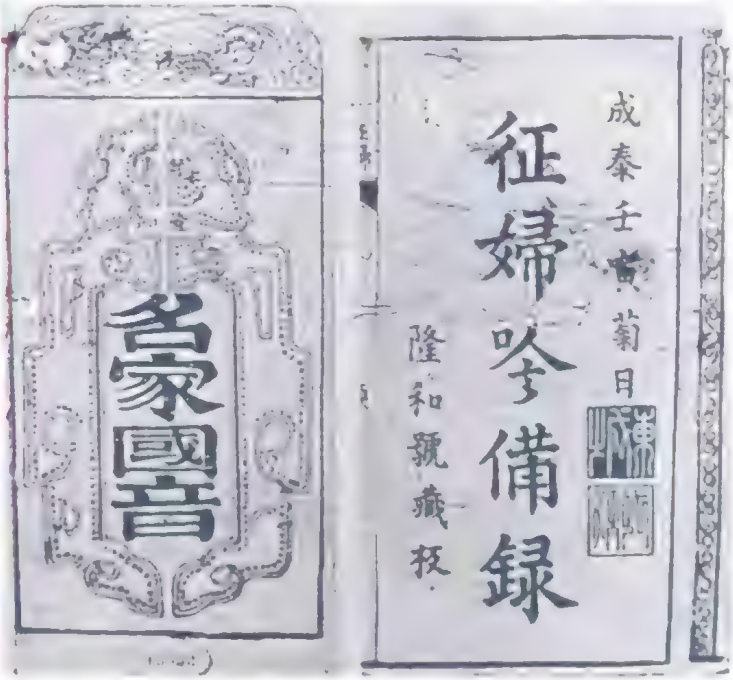 成泰壬寅菊日
征婦吟備録
隆和號藏板
名家國音